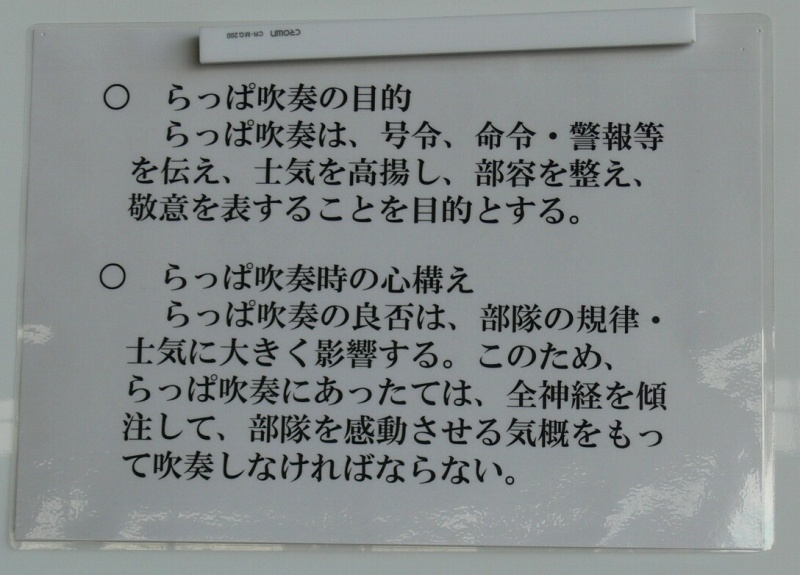 CROWN CR-MG200
○ らっぱ吹奏の目的
らっぱ吹奏は、号令、命令・警報等
を伝え、士気を高揚し、部容を整え、
敬意を表することを目的とする。
○ らっぱ吹奏時の心構え
らっぱ吹奏の良否は、部隊の規律・
士気に大きく影響する。このため、
らっぱ吹奏にあったては、全神経を傾
注して、部隊を感動させる気概をもっ
て吹奏しなければならない。